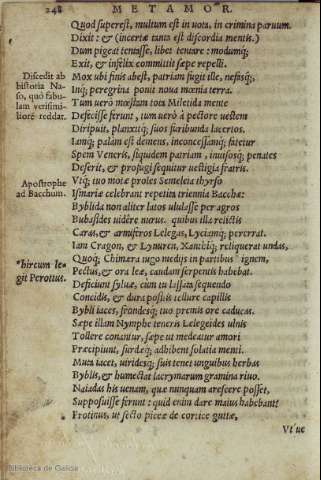 248 METAMOR.
Quod superest, multum est in uota, in crimina paruum.
Dixit: & (incertæ tanta est discordia mentis.)
Dum pigeat tentasse, libet tentare: modumq;
Exit, & infelix committit sæpe repelli.
Discedit ab historia Naso, quò fabulam verisimiliorẽ reddat.
Mox ubi finis abest, patriam fugit ille, nefasq;,
Inq; peregrina ponit noua mœnia terra.
Tum uerò mœstam tota Miletida mente
Defecisse ferunt, tum uerò à pectore uestem
Diripuit, planxitq; suos furibunda lacertos.
Iamq; palam est demens, inconcessamq; fatetur
Spem Veneris, siquidem patriam, inuisosq; penates
Deserit, & profugi sequitur uestigia fratris.
Apostrophe ad Bacchum.
Vtq; tuo motæ proles Semeleia thyrso
Ismariæ celebrant repetita triennia Bacchæ:
Byblida non aliter latos ululasse per agros
Bubasides uidêre nurus. quibus illa relictis
Caras, & armiferos Lelegas, Lyciamq; pererrat.
Iam Cragon, & Lymiren, Xanthiq; reliquerat undas,
*hircum legit Perottus.
Quoq; Chimæra iugo medijs in partibus *ignem,
Pectus, & ora leæ, caudam serpentis habebat.
Deficiunt syluæ, cum tu lassata sequendo
Concidis, & dura positis tellure capillis
Bybli iaces, frondesq; tuo premis ore caducas.
Sæpe illam Nymphæ teneris Lelegeides ulnis
Tollere conantur, sæpe ut medeatur amori
Præcipiunt, surdæq; adhibent solatia menti.
Muta iacet, uiridesq; suis tenet unguibus herbas
Byblis, & humectat lacrymarum gramina riuo.
Naiadas his uenam, quæ nunquam arescere posset,
Supposuisse ferunt: quid enim dare maius habebant?
Protinus, ut secto piceæ de cortice guttæ,
Vt'ue
Biblioteca de Galicia